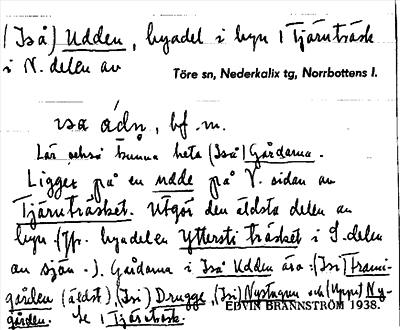 (Iså) Udden, byadel i byn 1 Tjärnträsk
i N. delen av
Töre sn, Nederkalix tg, Norrbottens l.
ɪsa ádn, bf. m.
Lär också kunna heta (Iså) Gårdarna.
Ligger på en udde på V. sidan av
Tjärnträsket. Utgör den äldsta delen av
byn. (Jfr. byadelen Yttersti träsket i S. delen
av sjön.). Gårdarna i Iså Udden äro: (Isi) Frami-
gården (äldst), (Isi) Drugge, (Isi) Nystugun och (Uppi) Ny-
gården. Se 1 Tjärnträsk.
EDVIN BRÄNNSTRÖM 1938.